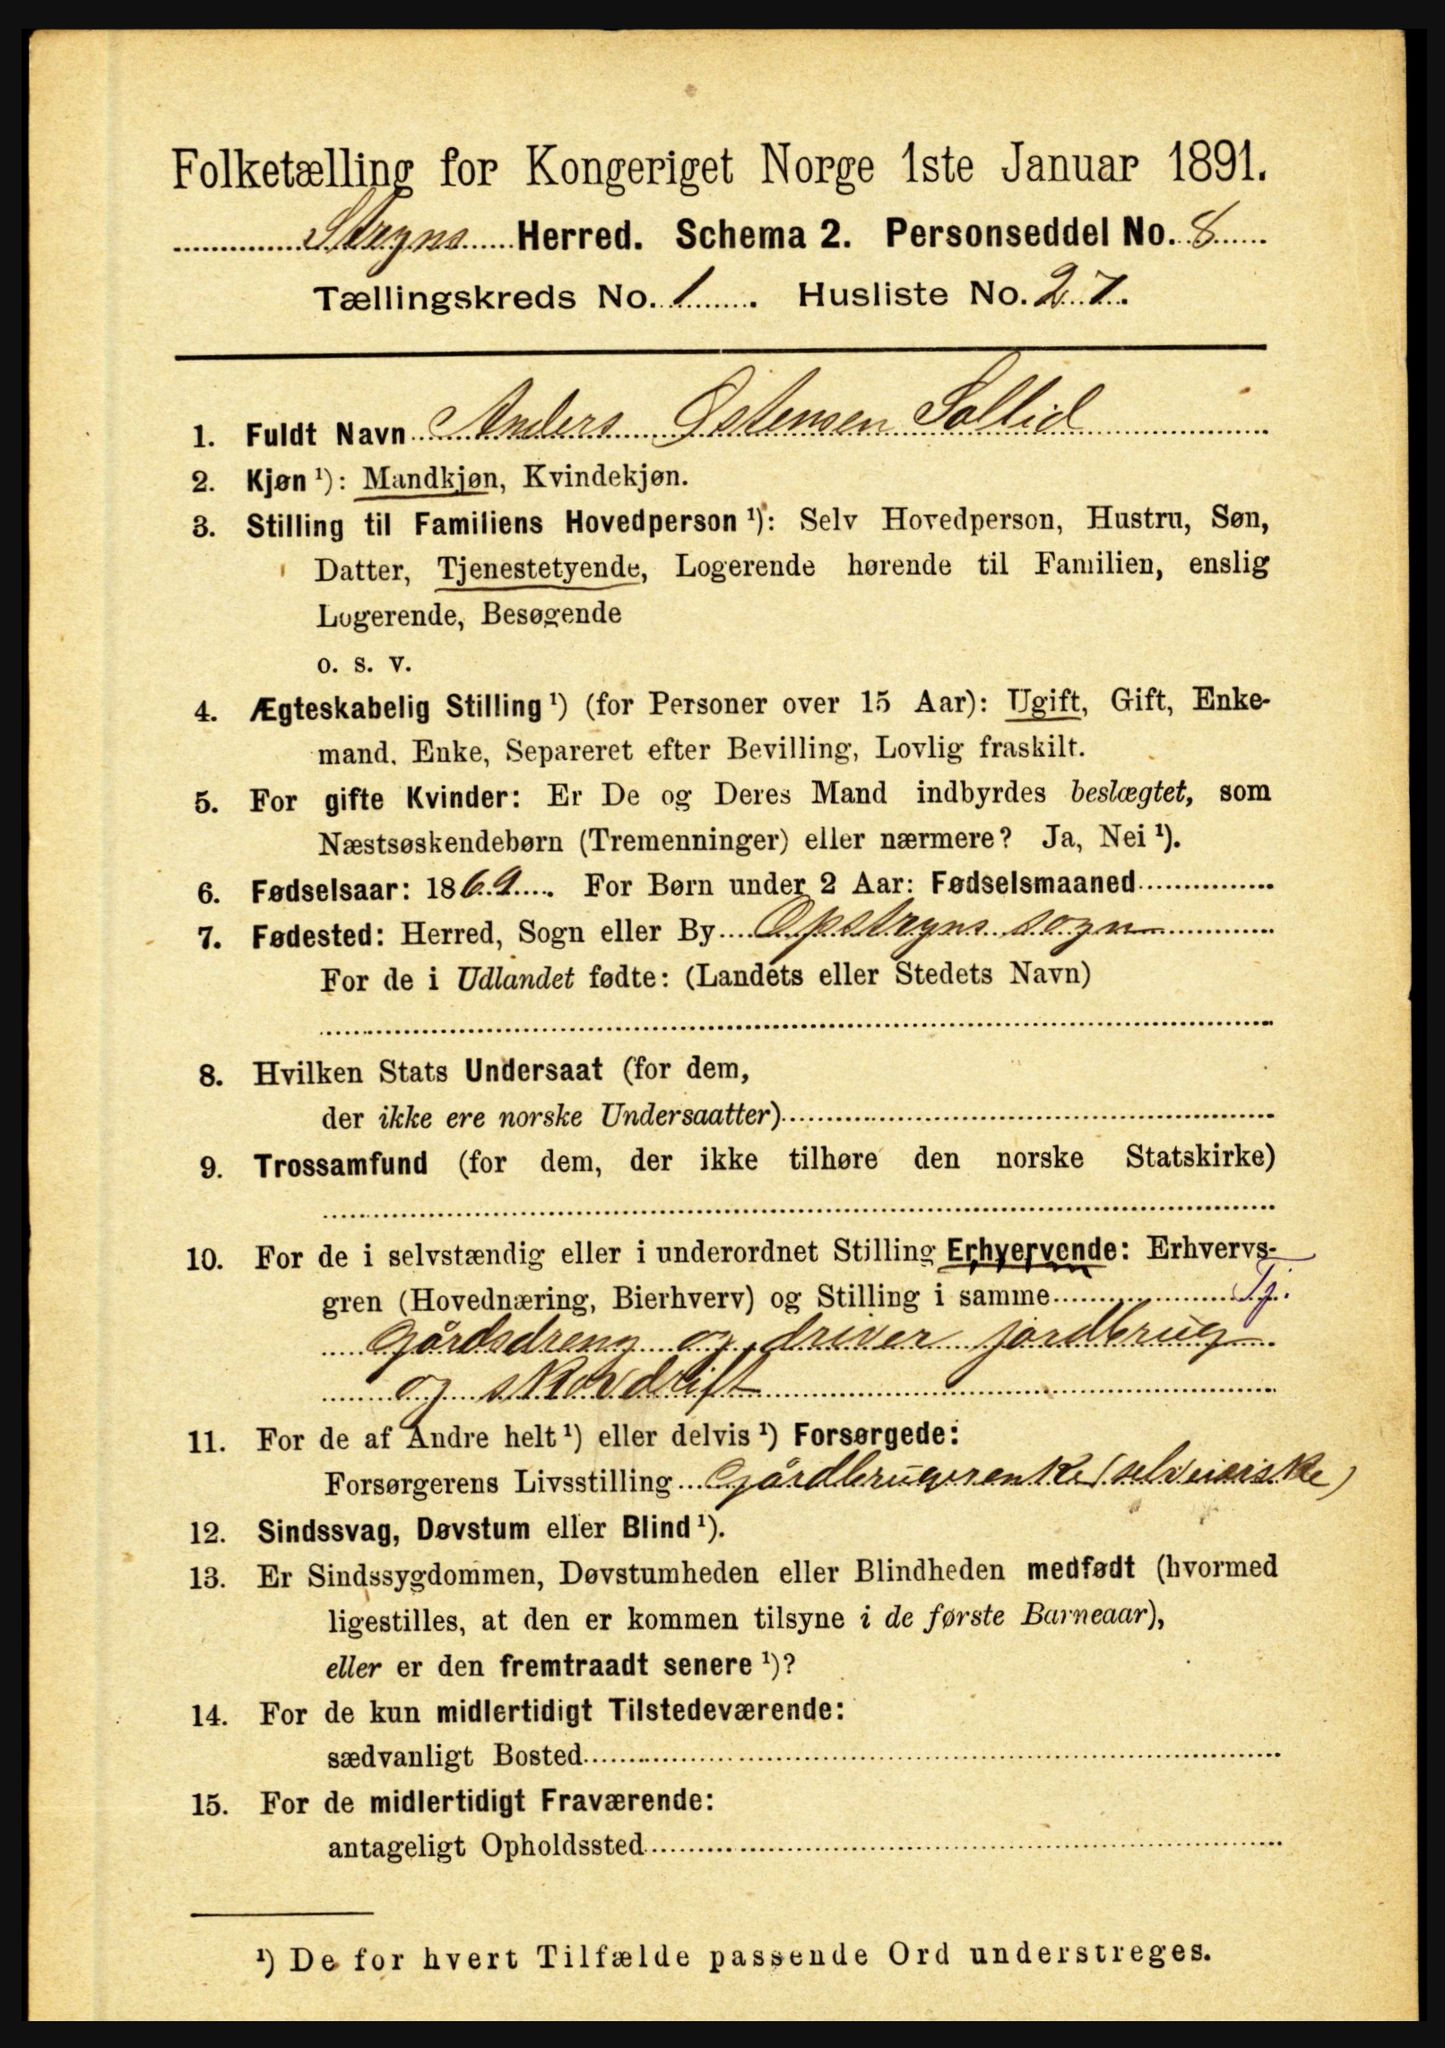 Folketælling for Kongeriget Norge 1ste Januar 1891.
Stryns Herred. Schema 2. Personseddel No. 8
Tællingskreds No. 1. Husliste No. 27.
1. Fuldt Navn Anders Østensen Sollid
2. Kjøn ¹): Mandkjøn, Kvindekjøn.
3. Stilling til Familiens Hovedperson ¹): Selv Hovedperson, Hustru, Søn,
Datter, Tjenestetyende, Logerende hørende til Familien, enslig
Logerende, Besøgende
o. s. v.
4. Ægteskabelig Stilling ¹) (for Personer over 15 Aar): Ugift, Gift, Enke-
mand, Enke, Separeret efter Bevilling, Lovlig fraskilt.
5. For gifte Kvinder: Er De og Deres Mand indbyrdes beslægtet, som
Næstsøskendebørn (Tremenninger) eller nærmere? Ja, Nei ¹).
6. Fødselsaar: 1869. For Børn under 2 Aar: Fødselsmaaned
7. Fødested: Herred, Sogn eller By Opstryns sogn
For de i Udlandet fødte: (Landets eller Stedets Navn)
8. Hvilken Stats Undersaat (for dem,
der ikke ere norske Undersaatter)
9. Trossamfund (for dem, der ikke tilhøre den norske Statskirke)
10. For de i selvstændig eller i underordnet Stilling Erhvervende: Erhvervs-
gren (Hovednæring, Bierhverv) og Stilling i samme Tj.
Gårdsdreng og driver jordbrug
og skovdrift
11. For de af Andre helt ¹) eller delvis ¹) Forsørgede:
Forsørgerens Livsstilling Gårdbrugerenke (selveierske)
12. Sindssvag, Døvstum eller Blind ¹).
13. Er Sindssygdommen, Døvstumheden eller Blindheden medfødt (hvormed
ligestilles, at den er kommen tilsyne i de første Barneaar),
eller er den fremtraadt senere ¹)?
14. For de kun midlertidigt Tilstedeværende:
sædvanligt Bosted
15. For de midlertidigt Fraværende:
antageligt Opholdssted
¹) De for hvert Tilfælde passende Ord understreges.